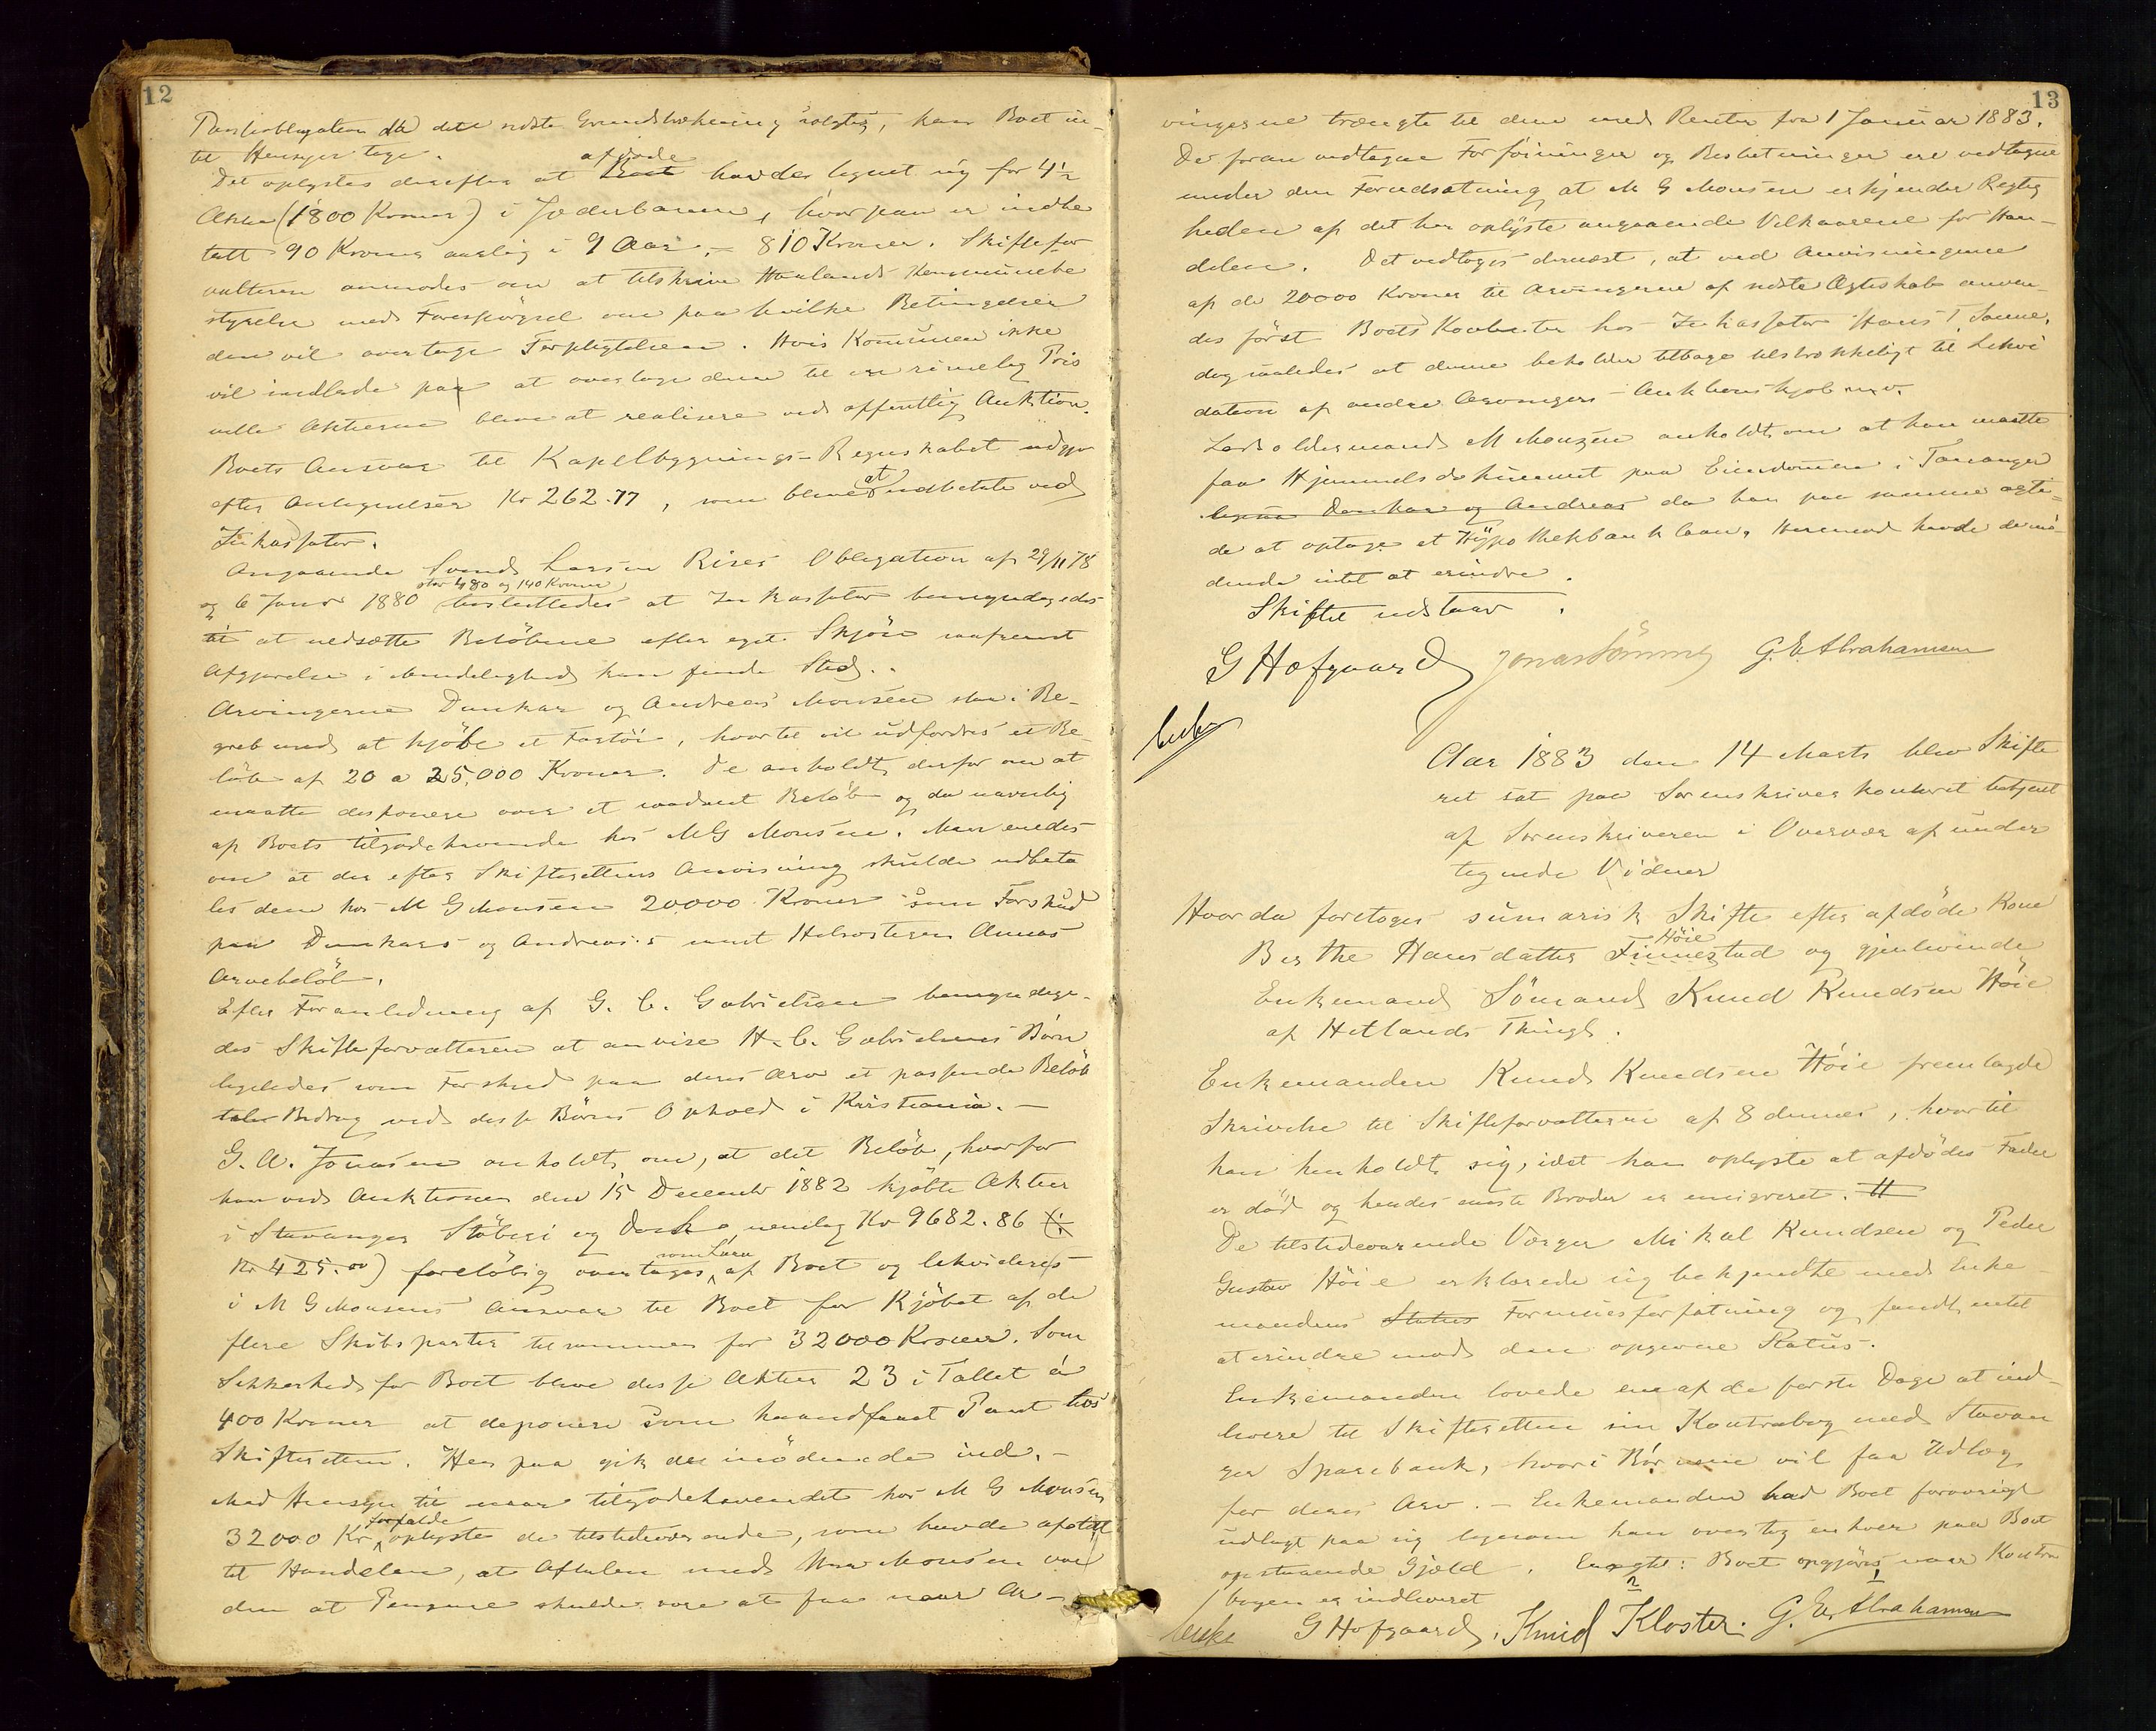 12
Panteobligation da det sidste Grundbrækning solgtes, kan Boet in-
tet Hensyn tage.
Det oplystes derefter at afdøde havde tegnet sig for 4½
Aktie (1800 Kroner) i Jæderbanen, hvorpaa er indbe
talt 90 Kroner aarlig i 9 Aar = 810 Kroner. Skiftefor
valteren anmodes om at tilskrive Haalands Kommunebe
styrelse med Forespørgsel om paa hvilke Betingelser
den vil overtage Forpligtelsen. Hvis Komunen ikke
vil indlade paa at overtage dem til en rimelig Pris
ville Aktierne blive at realisere ved offentlig Auktion.
Boets Ansvar til Kapelbygnings-Regnskabet udgjør
efter Antegnelser Kr 262.77, som bliver at udbetale ved
Inkassator.
Angaaende Svend Larsen Rises Obligation af 29/11 78
og 6 Januar 1880 stor 480 og 140 Kroner besluttedes at Inkassator bemyndigedes
til at nedsætte Beløbene efter eget Skjøn saafremt
Afgjørelse i Mindelighed kan finde Sted.
Arvingerne Dunkar og Andreas Monsen staa i Be-
greb med at kjøbe et Fartøi, hvortil vil udfordres et Be-
løb af 20 a 25,000 Kroner. De anholdt derfor om at
maatte disponere over et saadant Beløb og da navnlig
af Boets tilgodehavende hos M G Monsen. Man enedes
om at der efter Skifterettens Anvisning skulde udbeta
les dem hos M G Monsen 20000 Kroner som Forskud
paa Dunkars og Andreas's samt Halvsøsteren Annas
Arvebeløb.
Efter Foranledning af G. C. Gabrielsen bemyndige-
des Skifteforvalteren at anvise H. C. Gabrielsens Børn
ligeledes som Forskud paa deres Arv et passende Beløb
Bidrag ved disse Børns Ophold i Kristiania. —
G. A. Jonasen anholdt om, at det Beløb, hvorfor
han ved Auktionen den 15 December 1882 kjøbte Aktier
i Stavanger Støberi og Dock, nemlig Kr 9682.86
Kr 425.00) foreløbig overtages som Laan af Boet og likvideres
i M G Monsens Ansvar til Boet for Kjøbet af de
flere Skibsparter tilsammen for 32000 Kroner. Som
Sikkerhed for Boet blive disse Aktier 23 i Tallet à
400 Kroner at deponere som haandfaaet Pant hos
Skifteretten. Her paa gik de mødende ind. —
Med Hensyn til naar tilgodehavendet hos M G Monsen
32000 Kr forfalde oplyste de tilstedeværende, som havde afsluttet
til Handelen, at Aftalen med Hrr Monsen var
den at Pengene skulde være at faa naar Ar-
13
vingerne trængte til dem med Renter fra 1 Januar 1883.
De foran vedtagne Forføininger og Beslutninger ere vedtagne
under den Forudsætning at M G Monsen erkjender Rigtig
heden af det her oplyste angaaende Vilkaarene for Han-
delen. Det vedtoges dernæst, at ved Anvisningerne
af de 20000 Kroner til Arvingerne af sidste Ægteskab anven-
des først Boets Kontanter hos Inkassator Hans T Sømme,
dog saaledes at denne beholder tilbage tilstrækkeligt til Likvi
dation af andre Arvingers Auktionskjøb m.v.
Lods oldermand M Monsen anholdt om at han maatte
faa Hjemmelsdokument paa Eiendommen i Tananger
Dunkar og Andreas da han paa samme agte-
de at optage et Hypothekbanklaan. Herimod havde de mø-
dende intet at erindre.
Skiftet udstaar.
G Hofgaard Jonas Sømme G. E. Abrahamsen
Aar 1883 den 14 Marts blev Skifte
ret sat paa Sorenskriverkontoret betjent
af Sorenskriveren i Overvær af under
tegnede Vidner
Hvorda foretoges sumarisk Skifte efter afdøde Kone
Berthe Hansdatter Finnestad Høie og gjenlevende
Enkemand Sømand Knud Knudsen Høie
af Hetlands Thingl.
Enkemanden Knud Knudsen Høie fremlagde
Skrivelse til Skifteforvalteren af 8 dennes, hvortil
han henholdt sig, idet han oplyste at afdødes Fader
er død og hendes eneste Broder er emigreret.
De tilstedeværende Værger Mikal Knudsen og Peder
Gustav Høie erklærede sig bekjendte med Enke
mandens Status Formuesforfatning og fandt intet
at erindre mod den opgivne Status.
Enkemanden lovede en af de første Dage at ind-
levere til Skifteretten sin Kontrabog med Stavan
ger Sparebank, hvori Børnene vil faa Udlæg
for deres Arv. — Enkemanden bad Boet forøvrigt
udlagt paa sig ligesom han overtog enhver paa Boet
opstaaende Gjæld. Eragtet: Boet opgjøres, naar Kontra
bogen er indleveret
G Hofgaard. Knud Kloster. G. E. Abrahamsen